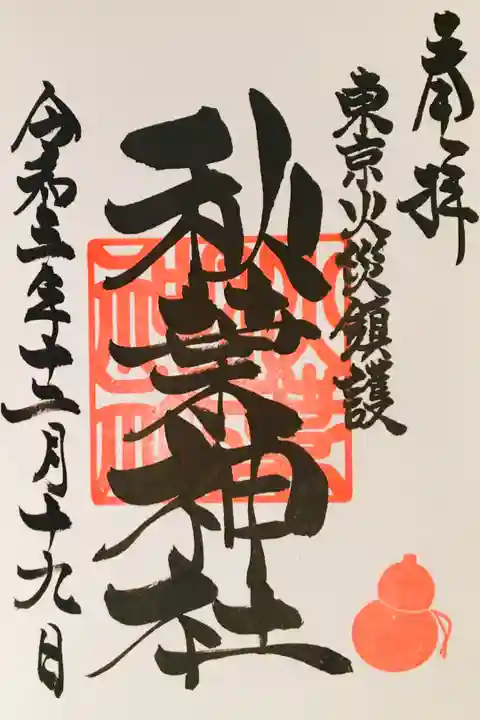 奉拝
東京火災鎮護
秋葉神社
令和三年十二月十九日